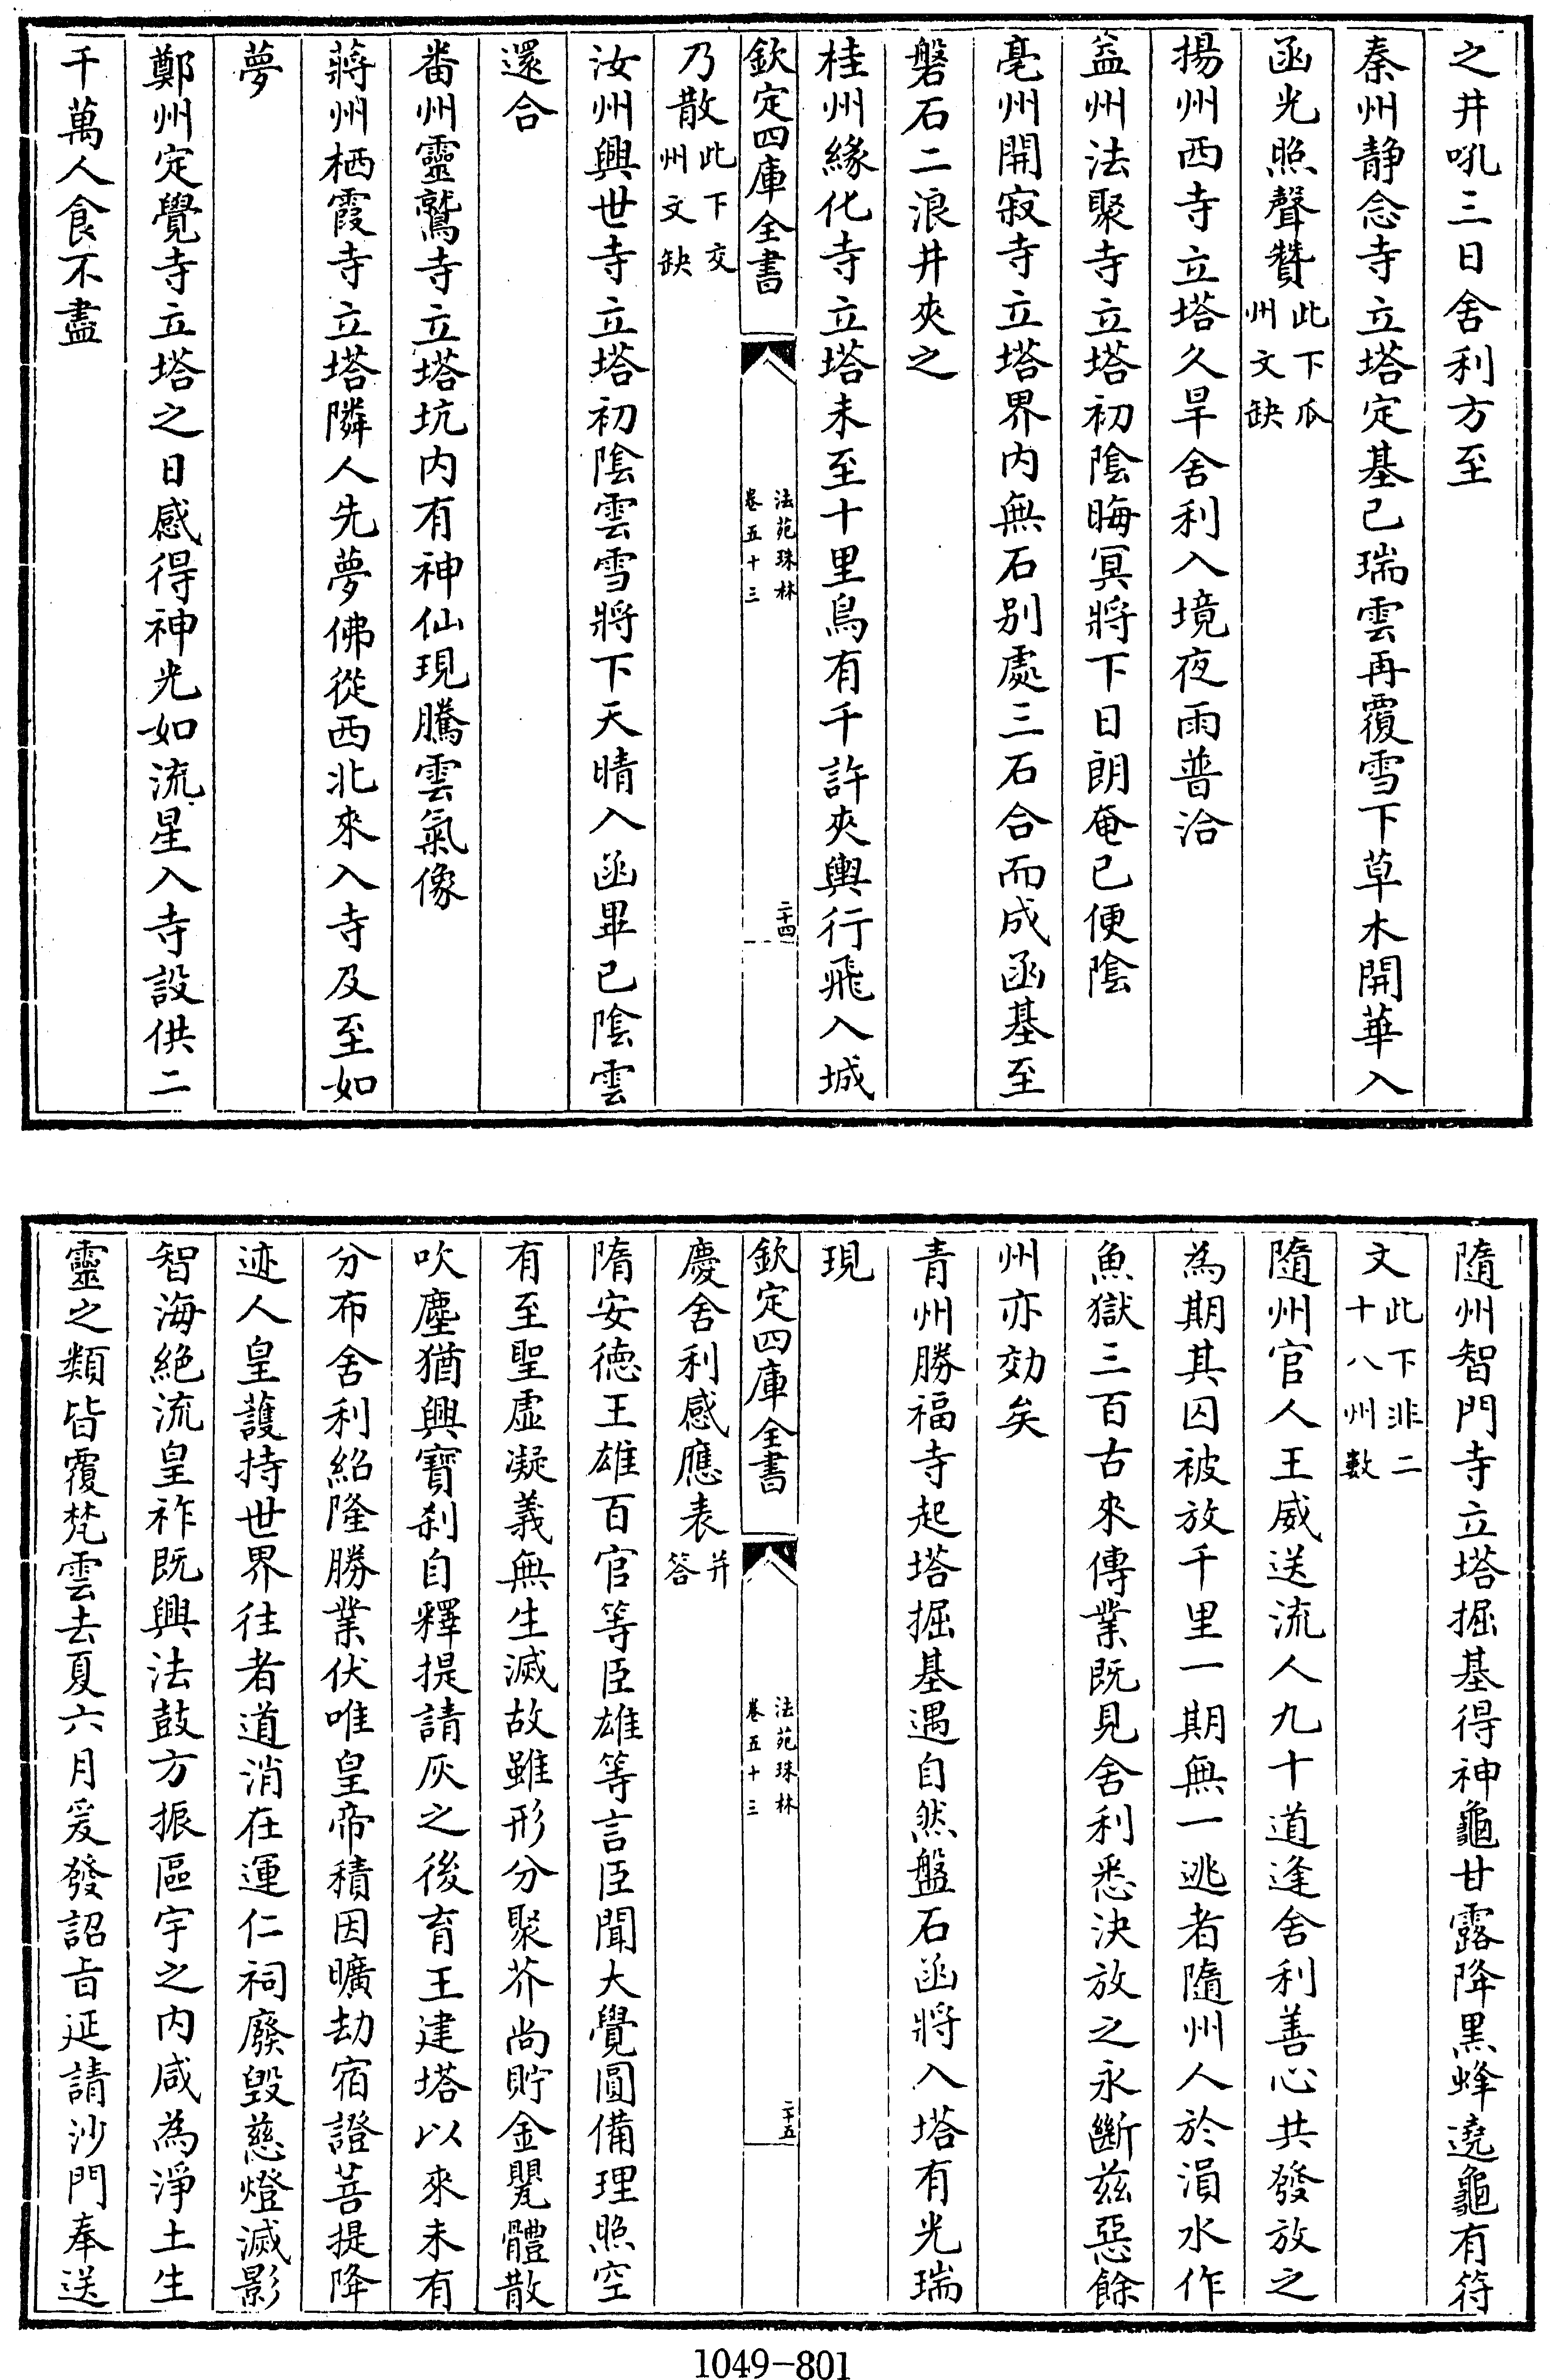 之井吼三日舍利方至
秦州静念寺立塔定基已瑞雲再覆雪下草木開華入
函光照聲贊此下瓜州文缺
揚州西寺立塔久旱舍利入境夜雨普洽
益州法聚寺立塔初隂晦冥將下日朗奄已便隂
亳州開寂寺立塔界内無石别處三石合而成函基至
磐石二浪井夾之
桂州緣化寺立塔未至十里鳥有千許夾輿行飛入城
欽定四庫全書
法苑珠林
卷五十三
二十四
乃散此下交州文缺
汝州興世寺立塔初隂雲雪將下天晴入函畢已隂雲
還合
番州靈鷲寺立塔坑内有神仙現騰雲氣像
蔣州栖霞寺立塔隣人先夢佛從西北來入寺及至如
夢
鄭州定覺寺立塔之日感得神光如流星入寺設供二
千萬人食不盡
隨州智門寺立塔掘基得神龜甘露降黑蜂遶龜有符
文此下非二十八州數
隨州官人王威送流人九十道逢舍利善心共發放之
為期其囚被放千里一期無一逃者隨州人於溳水作
魚獄三百古來傳業既見舍利悉決放之永斷兹惡餘
州亦効矣
青州勝福寺起塔掘基遇自然盤石函將入塔有光瑞
現
欽定四庫全書
法苑珠林
卷五十三
二十五
慶舍利感應表并答
隋安德王雄百官等臣雄等言臣聞大覺圓備理照空
有至聖虛凝義無生滅故雖形分聚芥尚貯金甖體散
吹塵猶興寶刹自釋提請灰之後育王建塔以來未有
分布舍利紹隆勝業伏唯皇帝積因曠劫宿證菩提降
迹人皇護持世界往者道消在運仁祠廢毁慈燈滅影
智海絶流皇祚既興法鼓方振區宇之内咸為淨土生
靈之類皆覆梵雲去夏六月爰發詔旨延請沙門奉送
1049-801